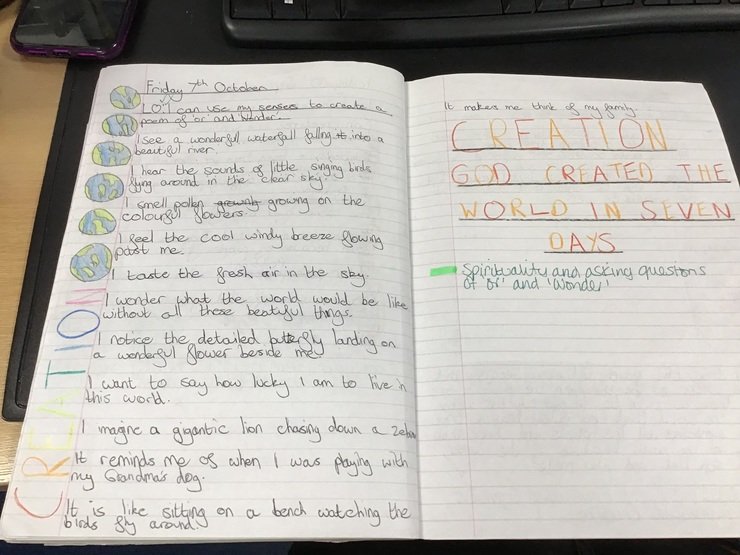 Friday 7th October
LO: I can use my senses to create a
poem of 'or' and 'wonder'.
I see a wonderfull waterfall falling into a
beautiful river.
I hear the sounds of little singing birds
flying around in the clear sky.
I smell pollen growing on the
colourful flowers.
I feel the cool windy breeze flowing
past me.
I taste the fresh air in the sky.
I wonder what the world would be like
without all these beatiful things.
I notice the detailed butterfly landing on
a wonderful flower beside me.
I want to say how lucky I am to live in
this world.
I magine a gigantic lion chasing down a Zebra
It reminds me of when I was playing with
my Grandma's dog.
It is like sitting on a bench watching the
birds fly around.
CREATION
It makes me think of my family.
CREATION
GOD CREATED THE
WORLD IN SEVEN
DAYS
Spirituality and asking questons
of 'or' and 'wonder'